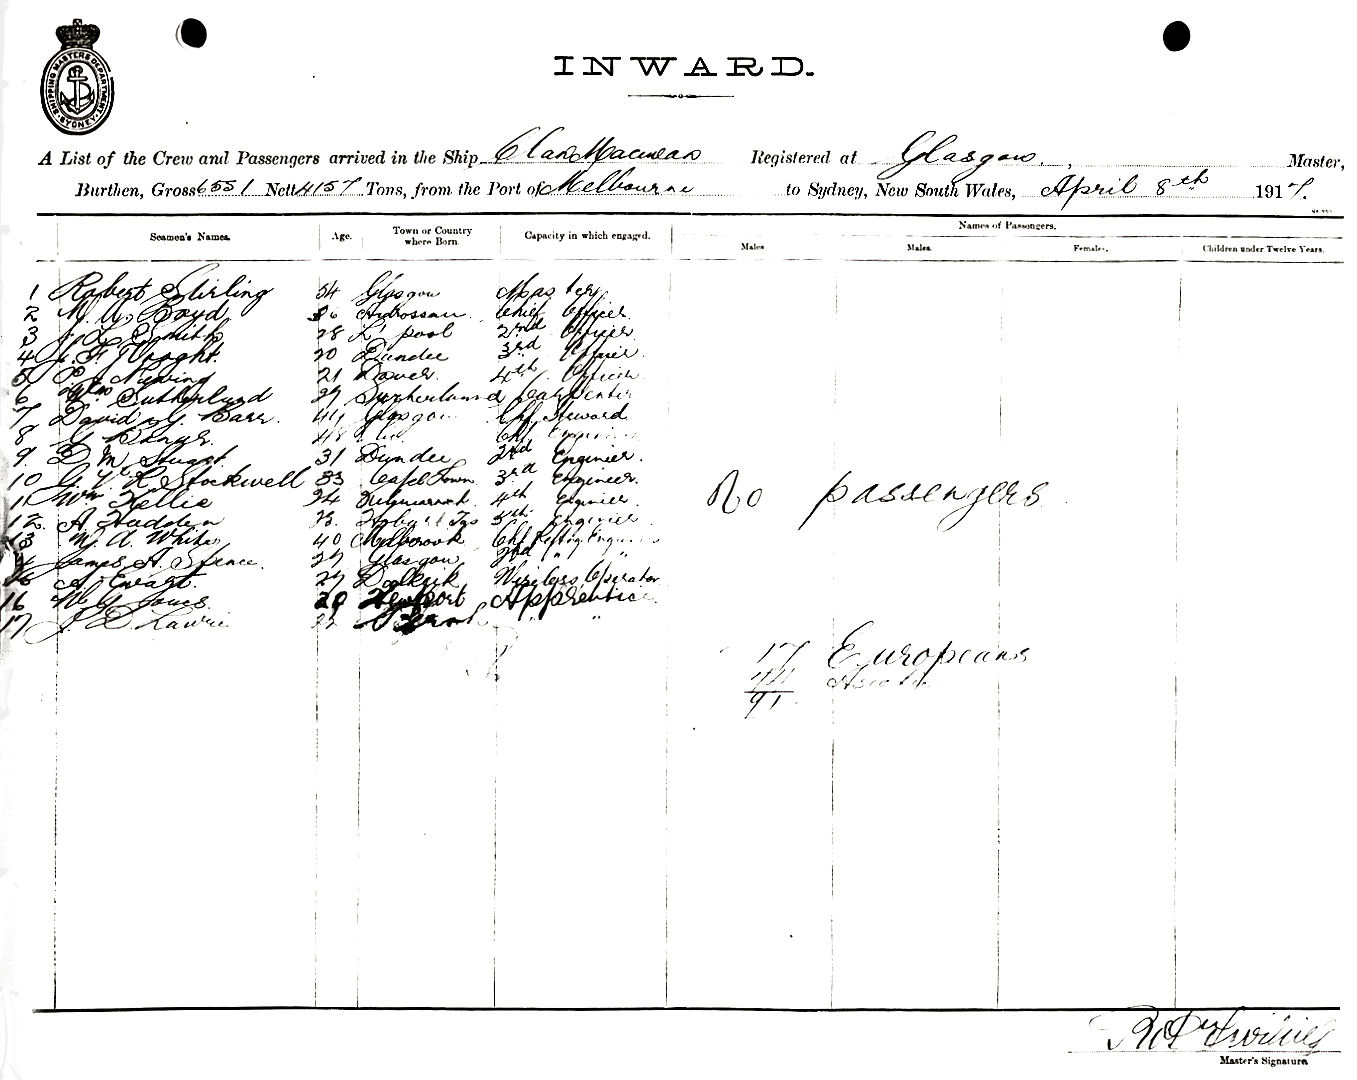 SHIPPING MASTERS DEPARTMENT SYDNEY
INWARD.
A List of the Crew and Passengers arrived in the Ship Clan Registered at Glasgow, Master,
Burthen, Gross 6551 Nett 4157 Tons, from the Port of Melbourne to Sydney, New South Wales, April 8th 1917.
Names of Passengers.
Seamen's Names. Age. Town or Country where Born. Capacity in which engaged. Males Males. Females. Children under Twelve Years.
1 Robert Stirling 54 Glasgow Master
2 Boyd 36 Chief Officer
3 Smith 28 L'pool 2nd Officer
4 J. F. Wright. 20 Dundee 3rd Officer
5 21 Dover 4th Officer
6 Wm Sutherland 27 Sutherland Carpenter
7 David G. Barr. 44 Glasgow Chf Steward
8 G 48 Chf Engineer
9 D M Stuart 31 Dundee 2nd Engineer.
10 G. L Stockwell 33 Cape Town 3rd Engineer.
11 Wm Kellie 24 4th Engineer
12. A. Hadden 23. Hobart Tas 5th Engineer
13 W. A. White 40 Chf Engineer
James A. Spence. 27 Glasgow 2nd " "
A. Ewart. 27 Wireless Operator
16 W G Jones. 20 Newport Apprentice
17 J. D Lawrie 22 " "
No passengers
17 Europeans
74
91
Master's Signature